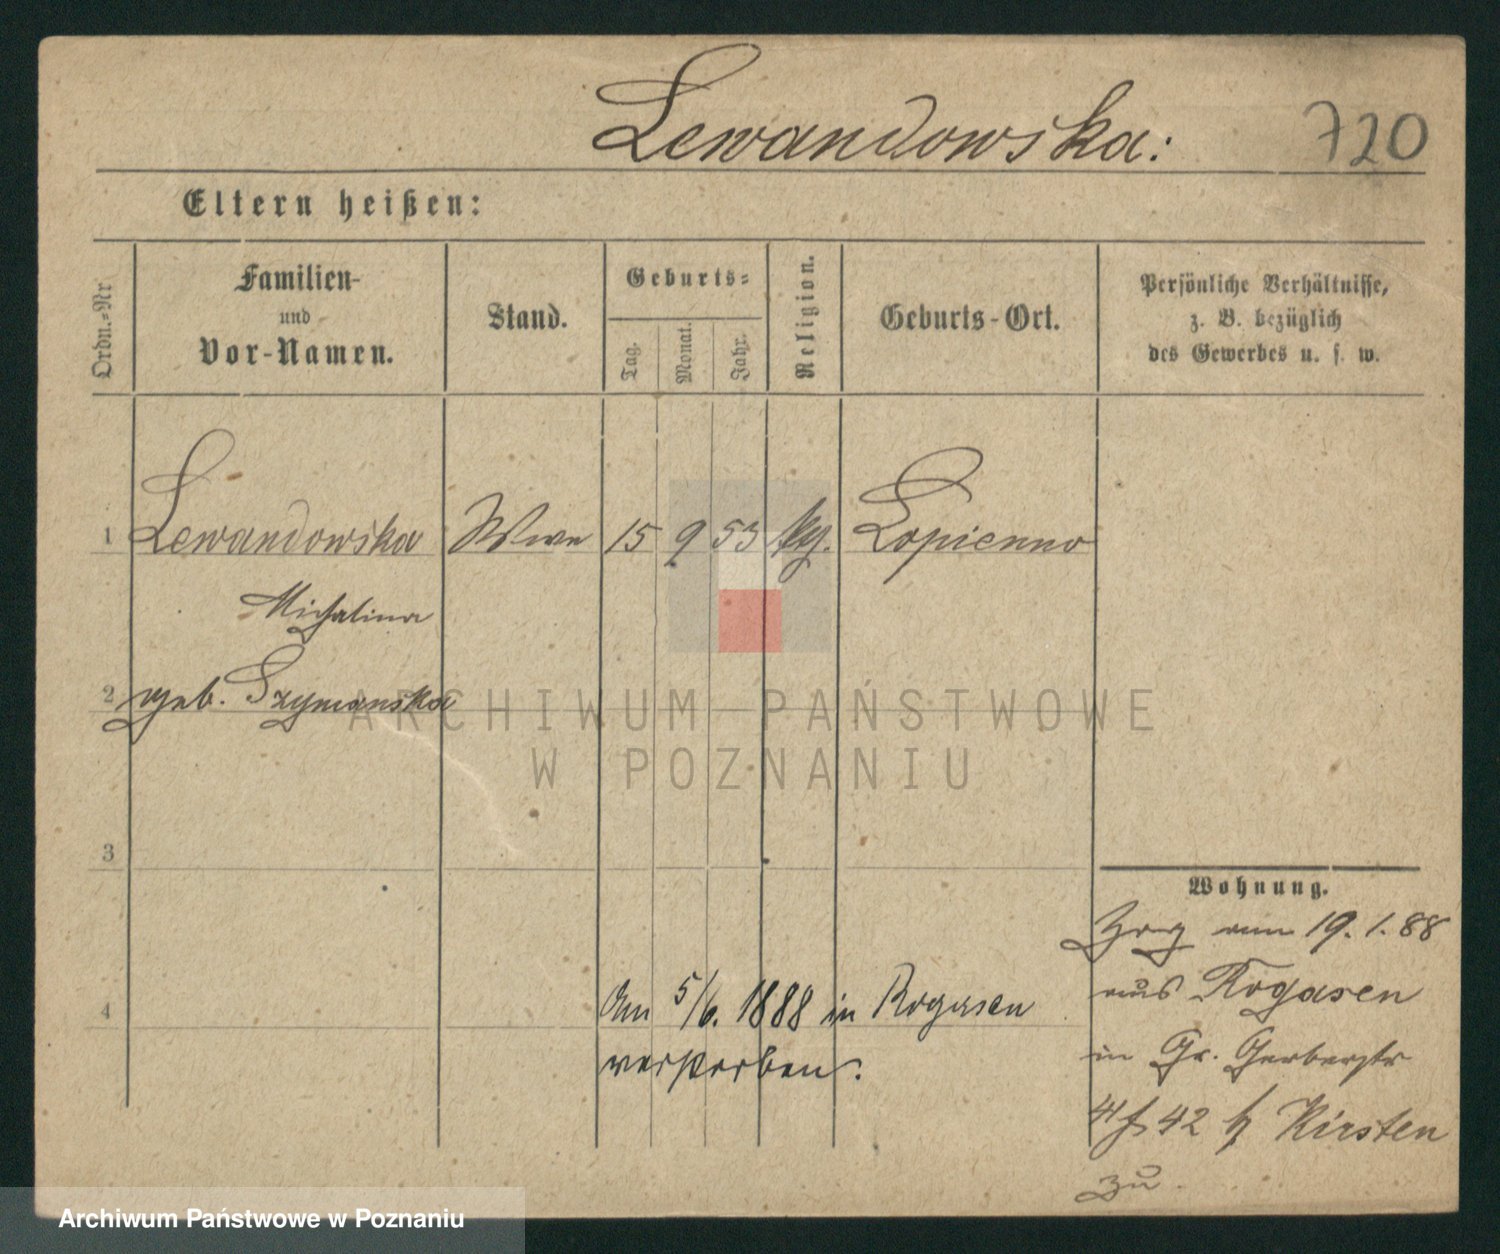 Lewandowska:
720
Eltern heißen:
Ordn.-Nr.
Familien-
und
Vor-Namen.
Stand.
Geburts-
Tag.
Monat.
Jahr.
Religion.
Geburts-Ort.
Persönliche Verhältnisse,
z. B. bezüglich
des Gewerbes u. s. w.
1 Lewandowska Wwe 15 9 53 Lopienno
Michalina
2 geb. Szymanska
3
4
Am 5/6. 1888 in Rogasen
verstorben.
Wohnung.
Zog am 19. 1. 88
aus Rogasen
in Gr. Gerberstr
42 Kirsten
zu.
ARCHIWUM PAŃSTWOWE
W POZNANIU
Archiwum Państwowe w Poznaniu